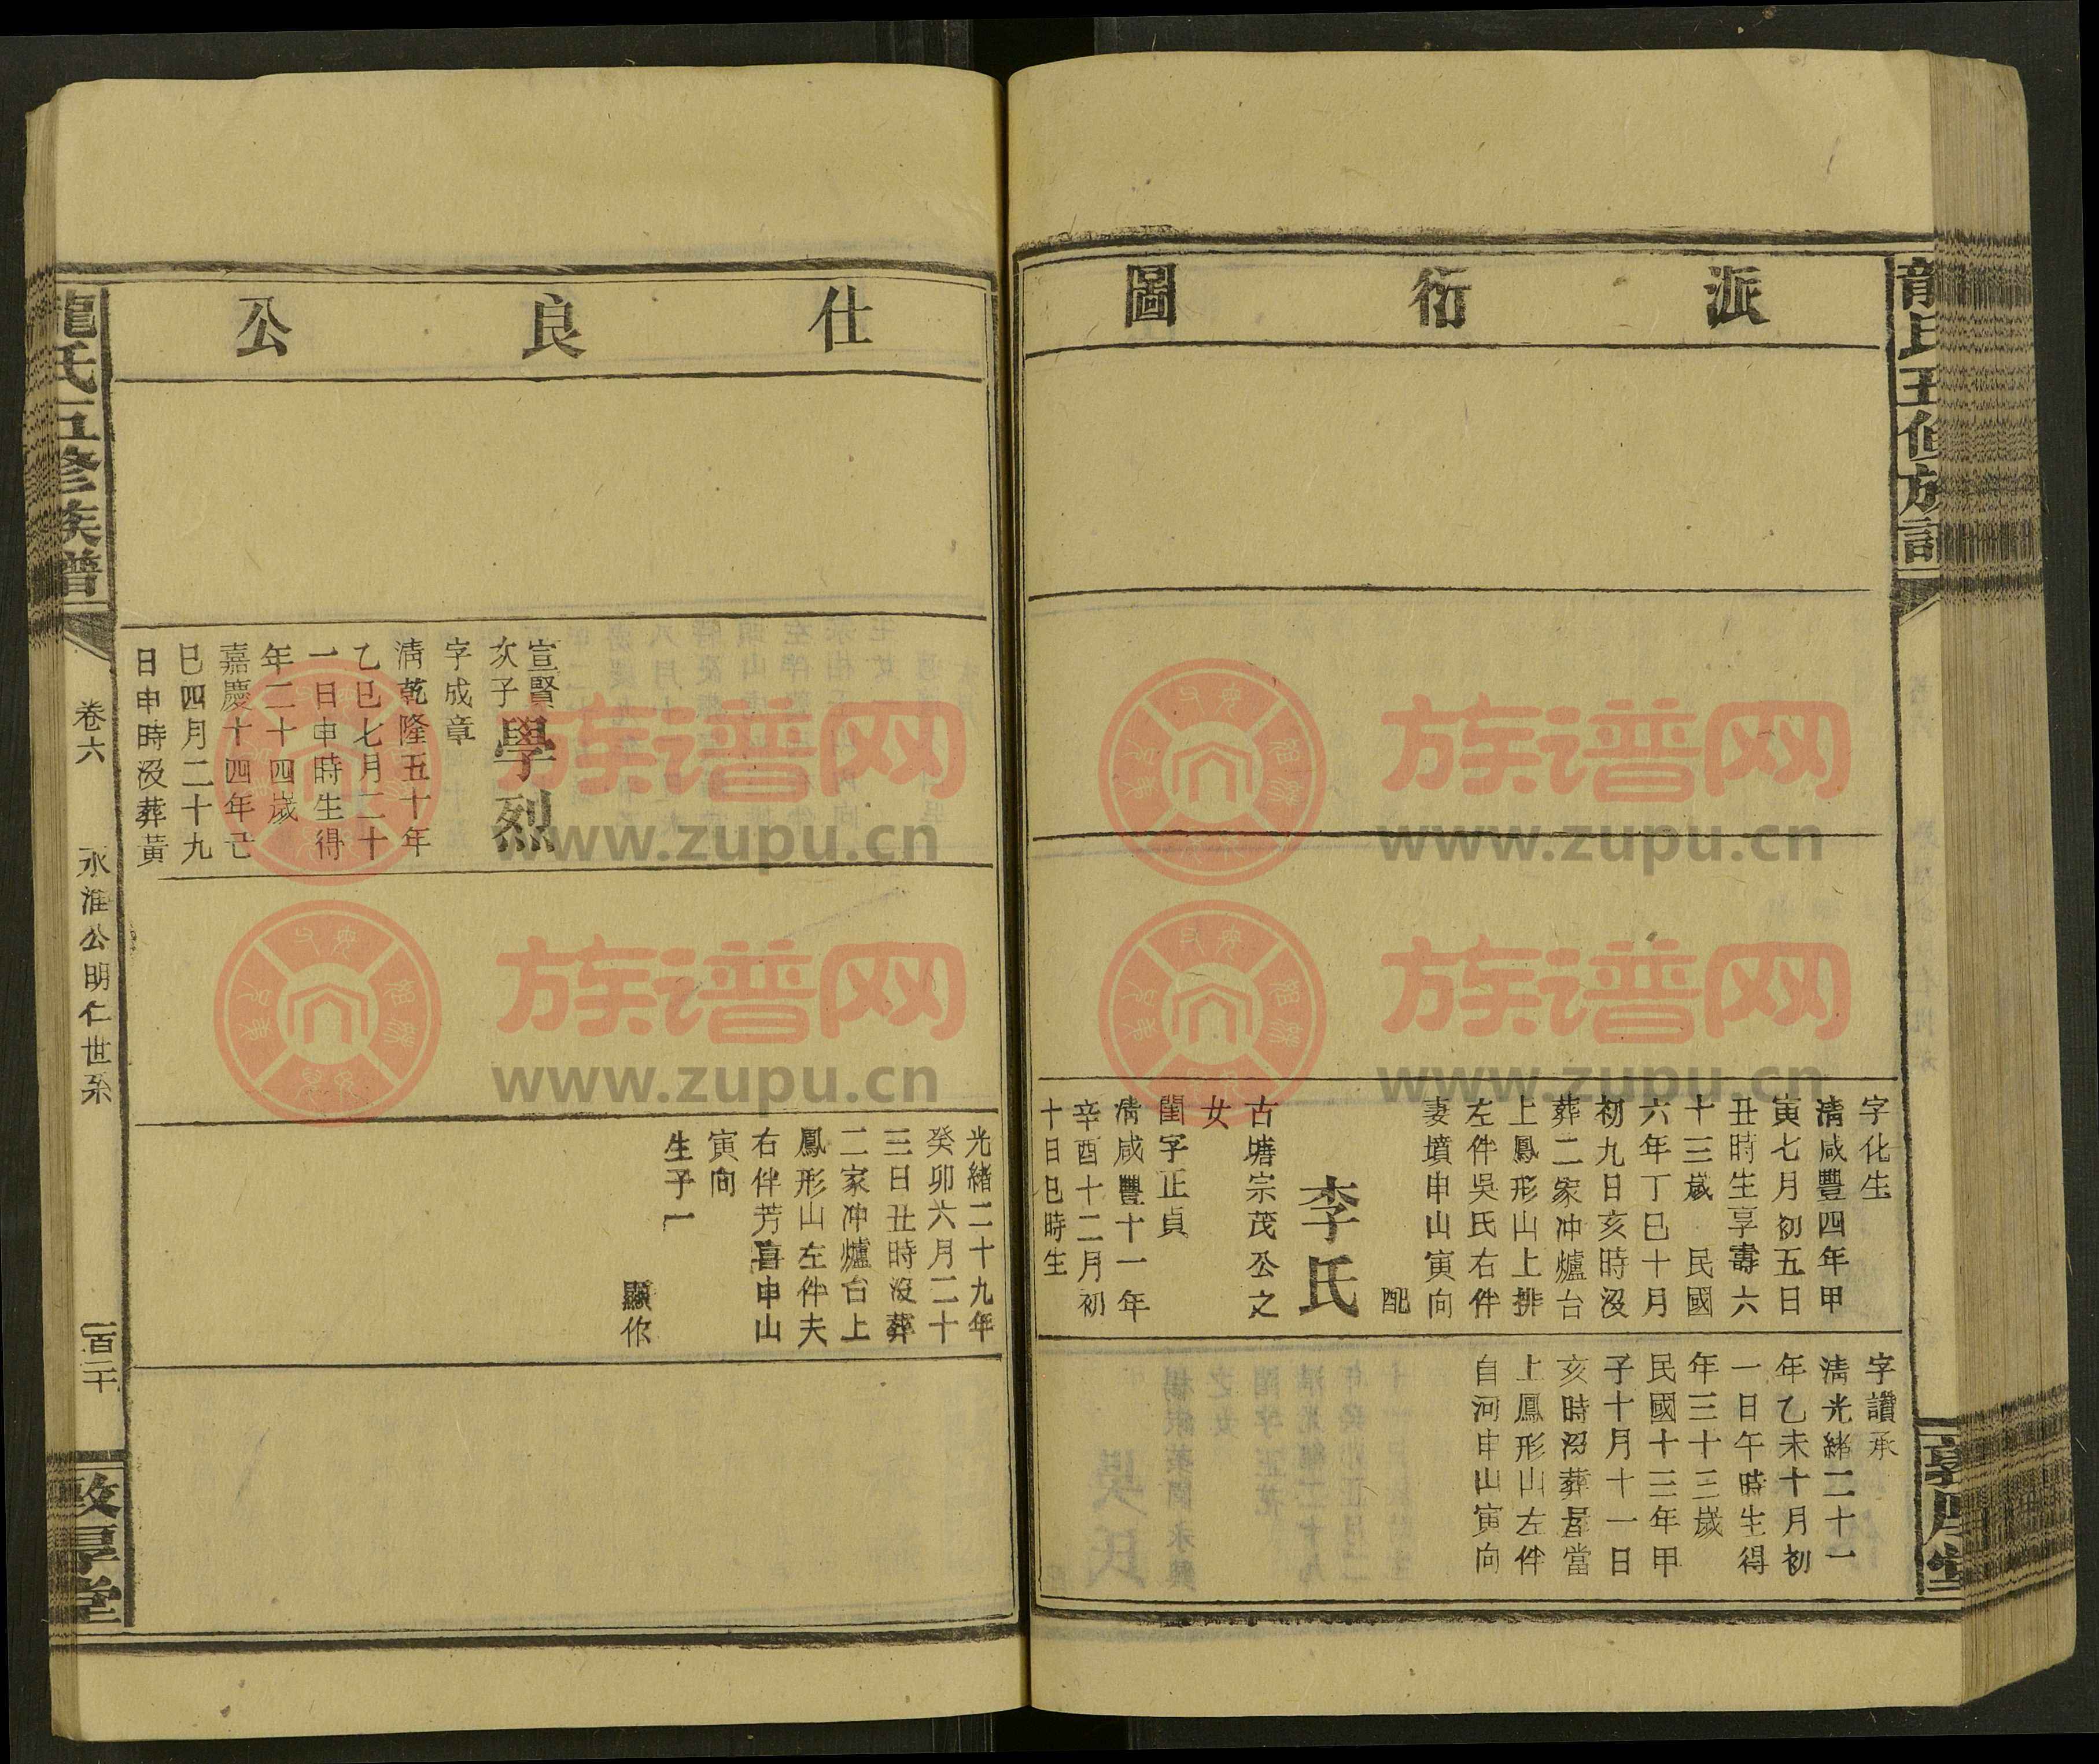 龍氏五修族譜
派衍圖
字化生
清咸豐四年甲
寅七月初五日
丑時生享壽六
十三歲 民國
六年丁巳十月
初九日亥時沒
葬二家冲爐台
上鳳形山上排
左件吳氏右件
妻墳申山寅向
配
李氏
古塘宗茂公之
女
閨字正貞
清咸豐十一年
辛酉十二月初
十日巳時生
字讚承
清光緒二十一
年乙未十月初
一日午時生得
年三十三歲
民國十三年甲
子十月十一日
亥時沒葬君當
上鳳形山左件
自河申山寅向
仕良公
宣賢
次子
學烈
字成章
清乾隆五十年
乙巳七月二十
一日申時生得
年二十四歲
嘉慶十四年己
巳四月二十九
日申時沒葬黃
光緒二十九年
癸卯六月二十
三日丑時沒葬
二家冲爐台上
鳳形山左件夫
右伴芳喜申山
寅向
生子一
顯作
龍氏五修族譜
卷六
永淮公明仁世系
一百二十
敦厚堂
族谱网
www.zupu.cn
族谱网
www.zupu.cn
族谱网
www.zupu.cn
族谱网
www.zupu.cn